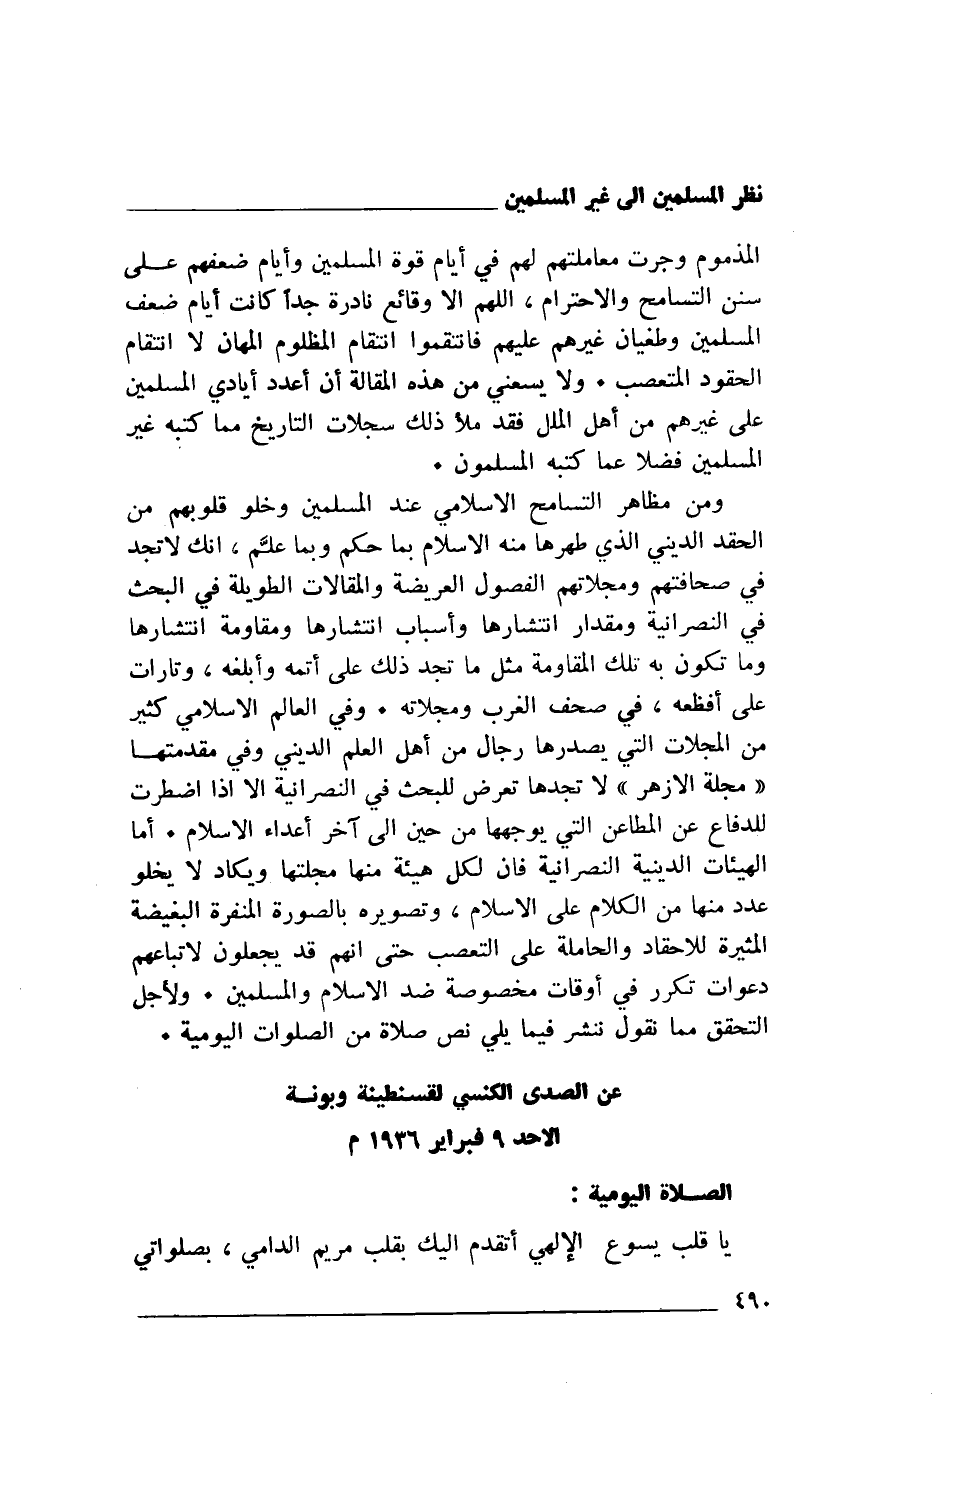 نظر المسلمين الى غير المسلمين
المذموم وجرت معاملتهم لهم في أيام قوة المسلمين وأيام ضعفهم عـلى
سنن التسامح والاحترام ، اللهم الا وقائع نادرة جداً كانت أيام ضعف
المسلمين وطغيان غيرهم عليهم فانتقموا انتقام المظلوم المهان لا انتقام
الحقود المتعصب . ولا يسعني من هذه المقالة أن أعدد أيادي المسلمين
على غيرهم من أهل الملل فقد ملأ ذلك سجلات التاريخ مما كتبه غير
المسلمين فضلا عما كتبه المسلمون .
ومن مظاهر التسامح الاسلامي عند المسلمين وخلو قلوبهم من
الحقد الديني الذي طهرها منه الاسلام بما حكم وبما علَّم ، انك لاتجد
في صحافتهم ومجلاتهم الفصول العريضة والمقالات الطويلة في البحث
في النصرانية ومقدار انتشارها وأسباب انتشارها ومقاومة انتشارها
وما تكون به تلك المقاومة مثل ما تجد ذلك على أتمه وأبلغه ، وتارات
على أفظعه ، في صحف الغرب ومجلاته . وفي العالم الاسلامي كثير
من المجلات التي يصدرها رجال من أهل العلم الديني وفي مقدمتهـا
« مجلة الازهر » لا تجدها تعرض للبحث في النصرانية الا اذا اضطرت
للدفاع عن المطاعن التي يوجهها من حين الى آخر أعداء الاسلام . أما
الهيئات الدينية النصرانية فان لكل هيئة منها مجلتها ويكاد لا يخلو
عدد منها من الكلام على الاسلام ، وتصويره بالصورة المنفرة البغيضة
المثيرة للاحقاد والحاملة على التعصب حتى انهم قد يجعلون لاتباعهم
دعوات تكرر في أوقات مخصوصة ضد الاسلام والمسلمين . ولأجل
التحقق مما نقول ننشر فيما يلي نص صلاة من الصلوات اليومية .
عن الصدى الكنسي لقسنطينة وبونـة
الاحد ٩ فبراير ١٩٣٦ م
الصـلاة اليومية :
يا قلب يسوع الإلهي أتقدم اليك بقلب مريم الدامي ، بصلواتي
٤٩٠